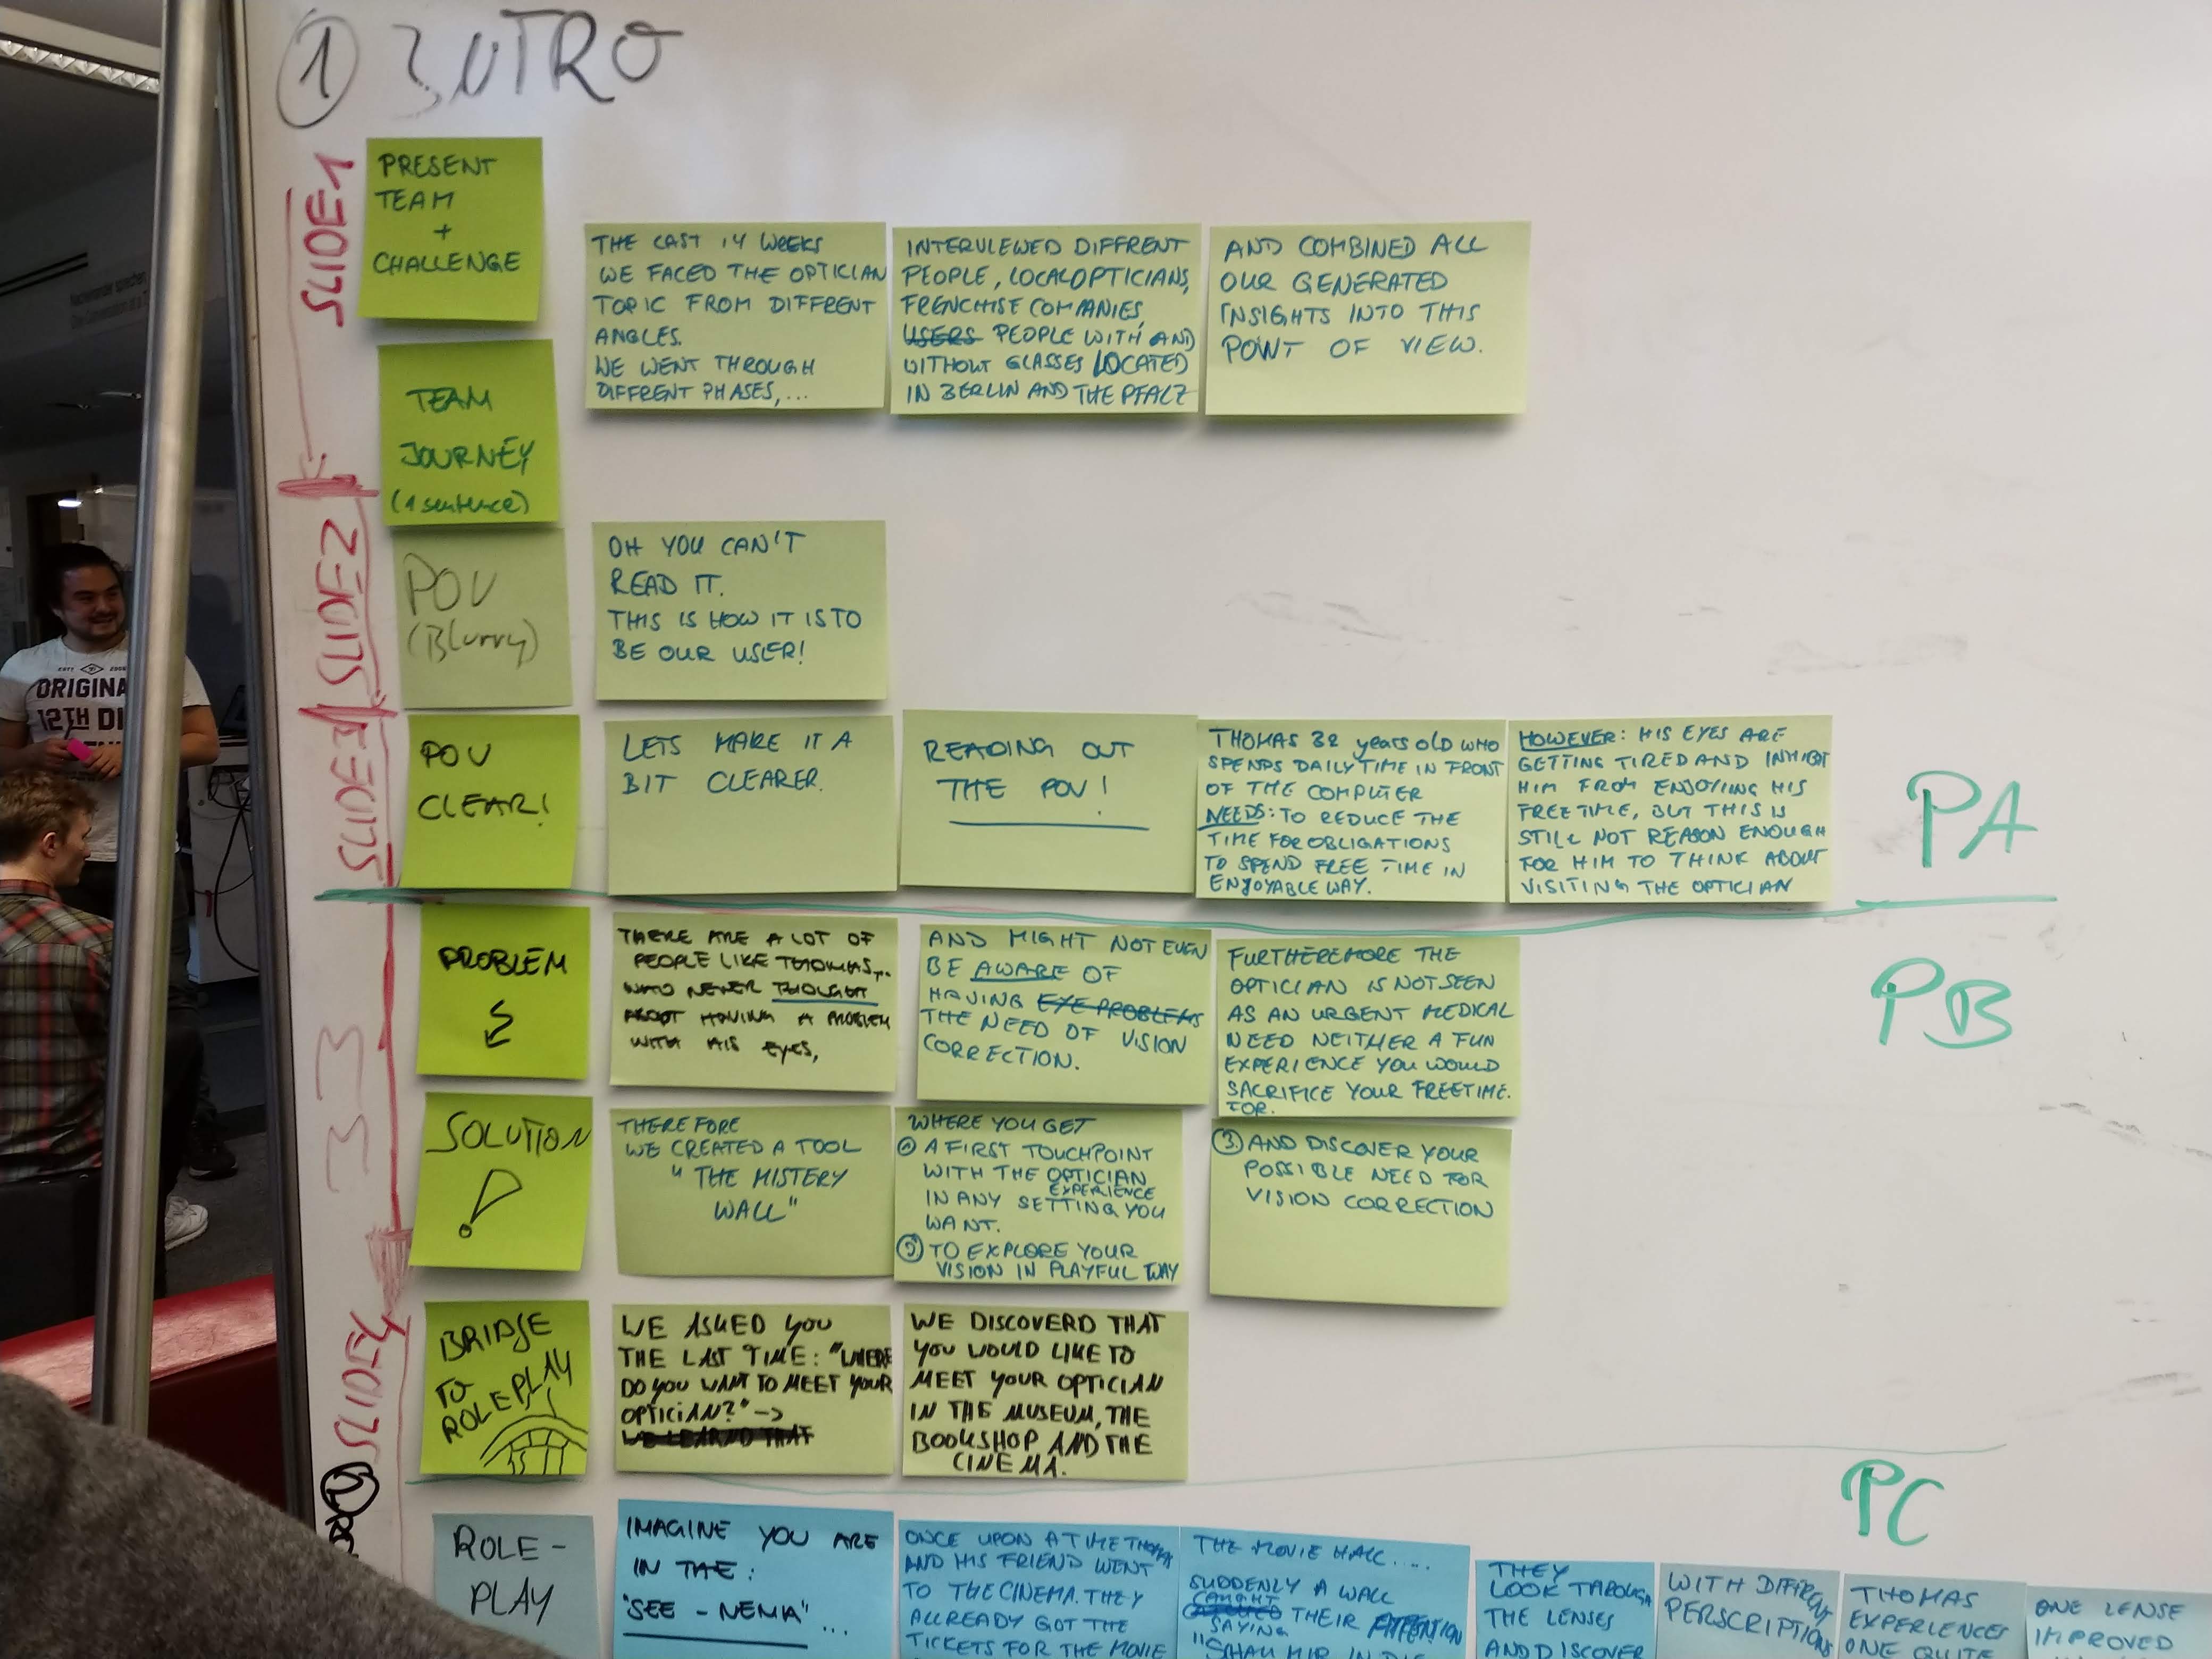 ① INTRO
SLIDE 1
PRESENT
TEAM
+
CHALLENGE
TEAM
JOURNEY
(1 sentence)
THE LAST 14 WEEKS
WE FACED THE OPTICIAN
TOPIC FROM DIFFRENT
ANGLES.
WE WENT THROUGH
DIFFRENT PHASES,...
INTERVIEWED DIFFRENT
PEOPLE, LOCAL OPTICIANS,
FRENCHISE COMPANIES,
USERS PEOPLE WITH AND
WITHOUT GLASSES LOCATED
IN BERLIN AND THE PFALZ
AND COMBINED ALL
OUR GENERATED
INSIGHTS INTO THIS
POINT OF VIEW.
SLIDE 2
POV
(Blurry)
OH YOU CAN'T
READ IT.
THIS IS HOW IT IS TO
BE OUR USER!
SLIDE 3
POV
CLEAR!
LETS MAKE IT A
BIT CLEARER.
READING OUT
THE POV!
THOMAS 32 years old WHO
SPENDS DAILY TIME IN FRONT
OF THE COMPUTER
NEEDS: TO REDUCE THE
TIME FOR OBLIGATIONS
TO SPEND FREE TIME IN
ENJOYABLE WAY.
HOWEVER: HIS EYES ARE
GETTING TIRED AND INHIBIT
HIM FROM ENJOYING HIS
FREETIME, BUT THIS IS
STILL NOT REASON ENOUGH
FOR HIM TO THINK ABOUT
VISITING THE OPTICIAN
PA
PB
33
PROBLEM
THERE ARE A LOT OF
PEOPLE LIKE THOMAS,..
WHO NEVER THOUGHT
ABOUT HAVING A PROBLEM
WITH HIS EYES,
AND MIGHT NOT EVEN
BE AWARE OF
HAVING EYE PROBLEMS
THE NEED OF VISION
CORRECTION.
FURTHEREMORE THE
OPTICIAN IS NOT SEEN
AS AN URGENT MEDICAL
NEED NEITHER A FUN
EXPERIENCE YOU WOULD
SACRIFICE YOUR FREETIME.
FOR.
SOLUTION
!
THEREFORE
WE CREATED A TOOL
"THE MISTERY
WALL"
WHERE YOU GET
① A FIRST TOUCHPOINT
WITH THE OPTICIAN
EXPERIENCE
IN ANY SETTING YOU
WANT.
② TO EXPLORE YOUR
VISION IN PLAYFUL WAY
③ AND DISCOVER YOUR
POSSIBLE NEED FOR
VISION CORRECTION
SLIDE 4
BRIDGE
TO
ROLEPLAY
WE ASKED YOU
THE LAST TIME: "WHERE
DO YOU WANT TO MEET YOUR
OPTICIAN?" ->
WE LEARND THAT
WE DISCOVERD THAT
YOU WOULD LIKE TO
MEET YOUR OPTICIAN
IN THE MUSEUM, THE
BOOKSHOP AND THE
CINEMA.
PC
ROLE-
PLAY
IMAGINE YOU ARE
IN THE:
"SEE-NEMA" ...
ONCE UPON A TIME THOMAS
AND HIS FRIEND WENT
TO THE CINEMA. THEY
ALLREADY GOT THE
TICKETS FOR THE MOVIE
THE MOVIE HALL....
SUDDENLY A WALL
CAUGHT
THEIR ATTENTION
SAYING
"SCHAU MIR IN DIE
THEY
LOOK THROUGH
THE LENSES
AND DISCOVER
WITH DIFFRENT
PERSCRIPTIONS
THOMAS
EXPERIENCES
ONE QUITE
ONE LENSE
IMPROVED
ORIGINA
12TH DI